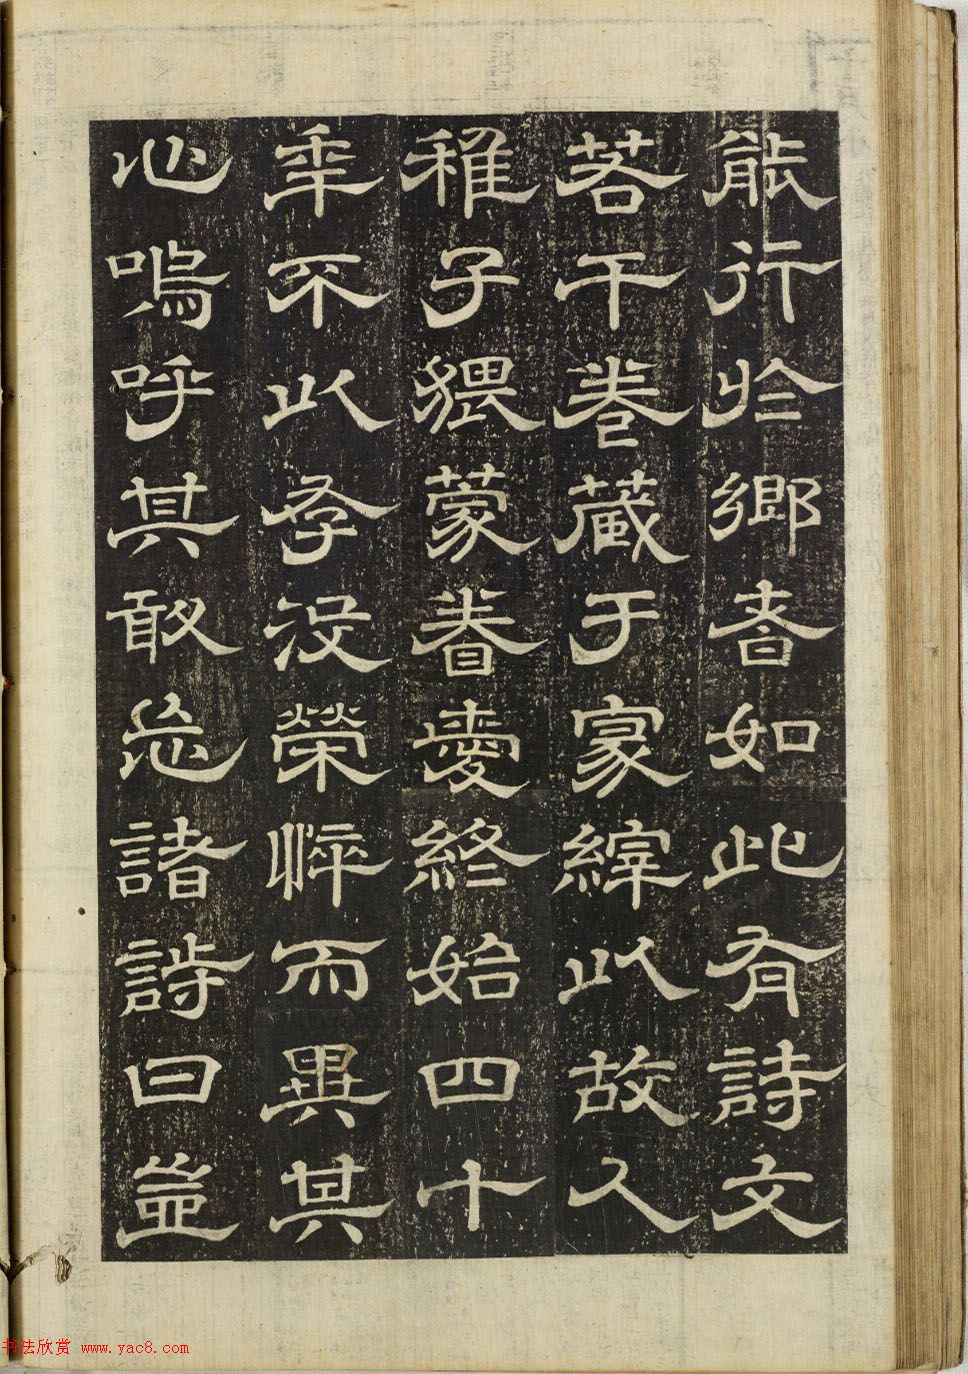 能行於鄉者如此有詩文
若干卷藏于家緯以故人
稚子猥蒙眷愛終始四十
年不以存沒榮悴而異其
心嗚呼其敢忘諸詩曰
书法欣赏 www.yac8.com